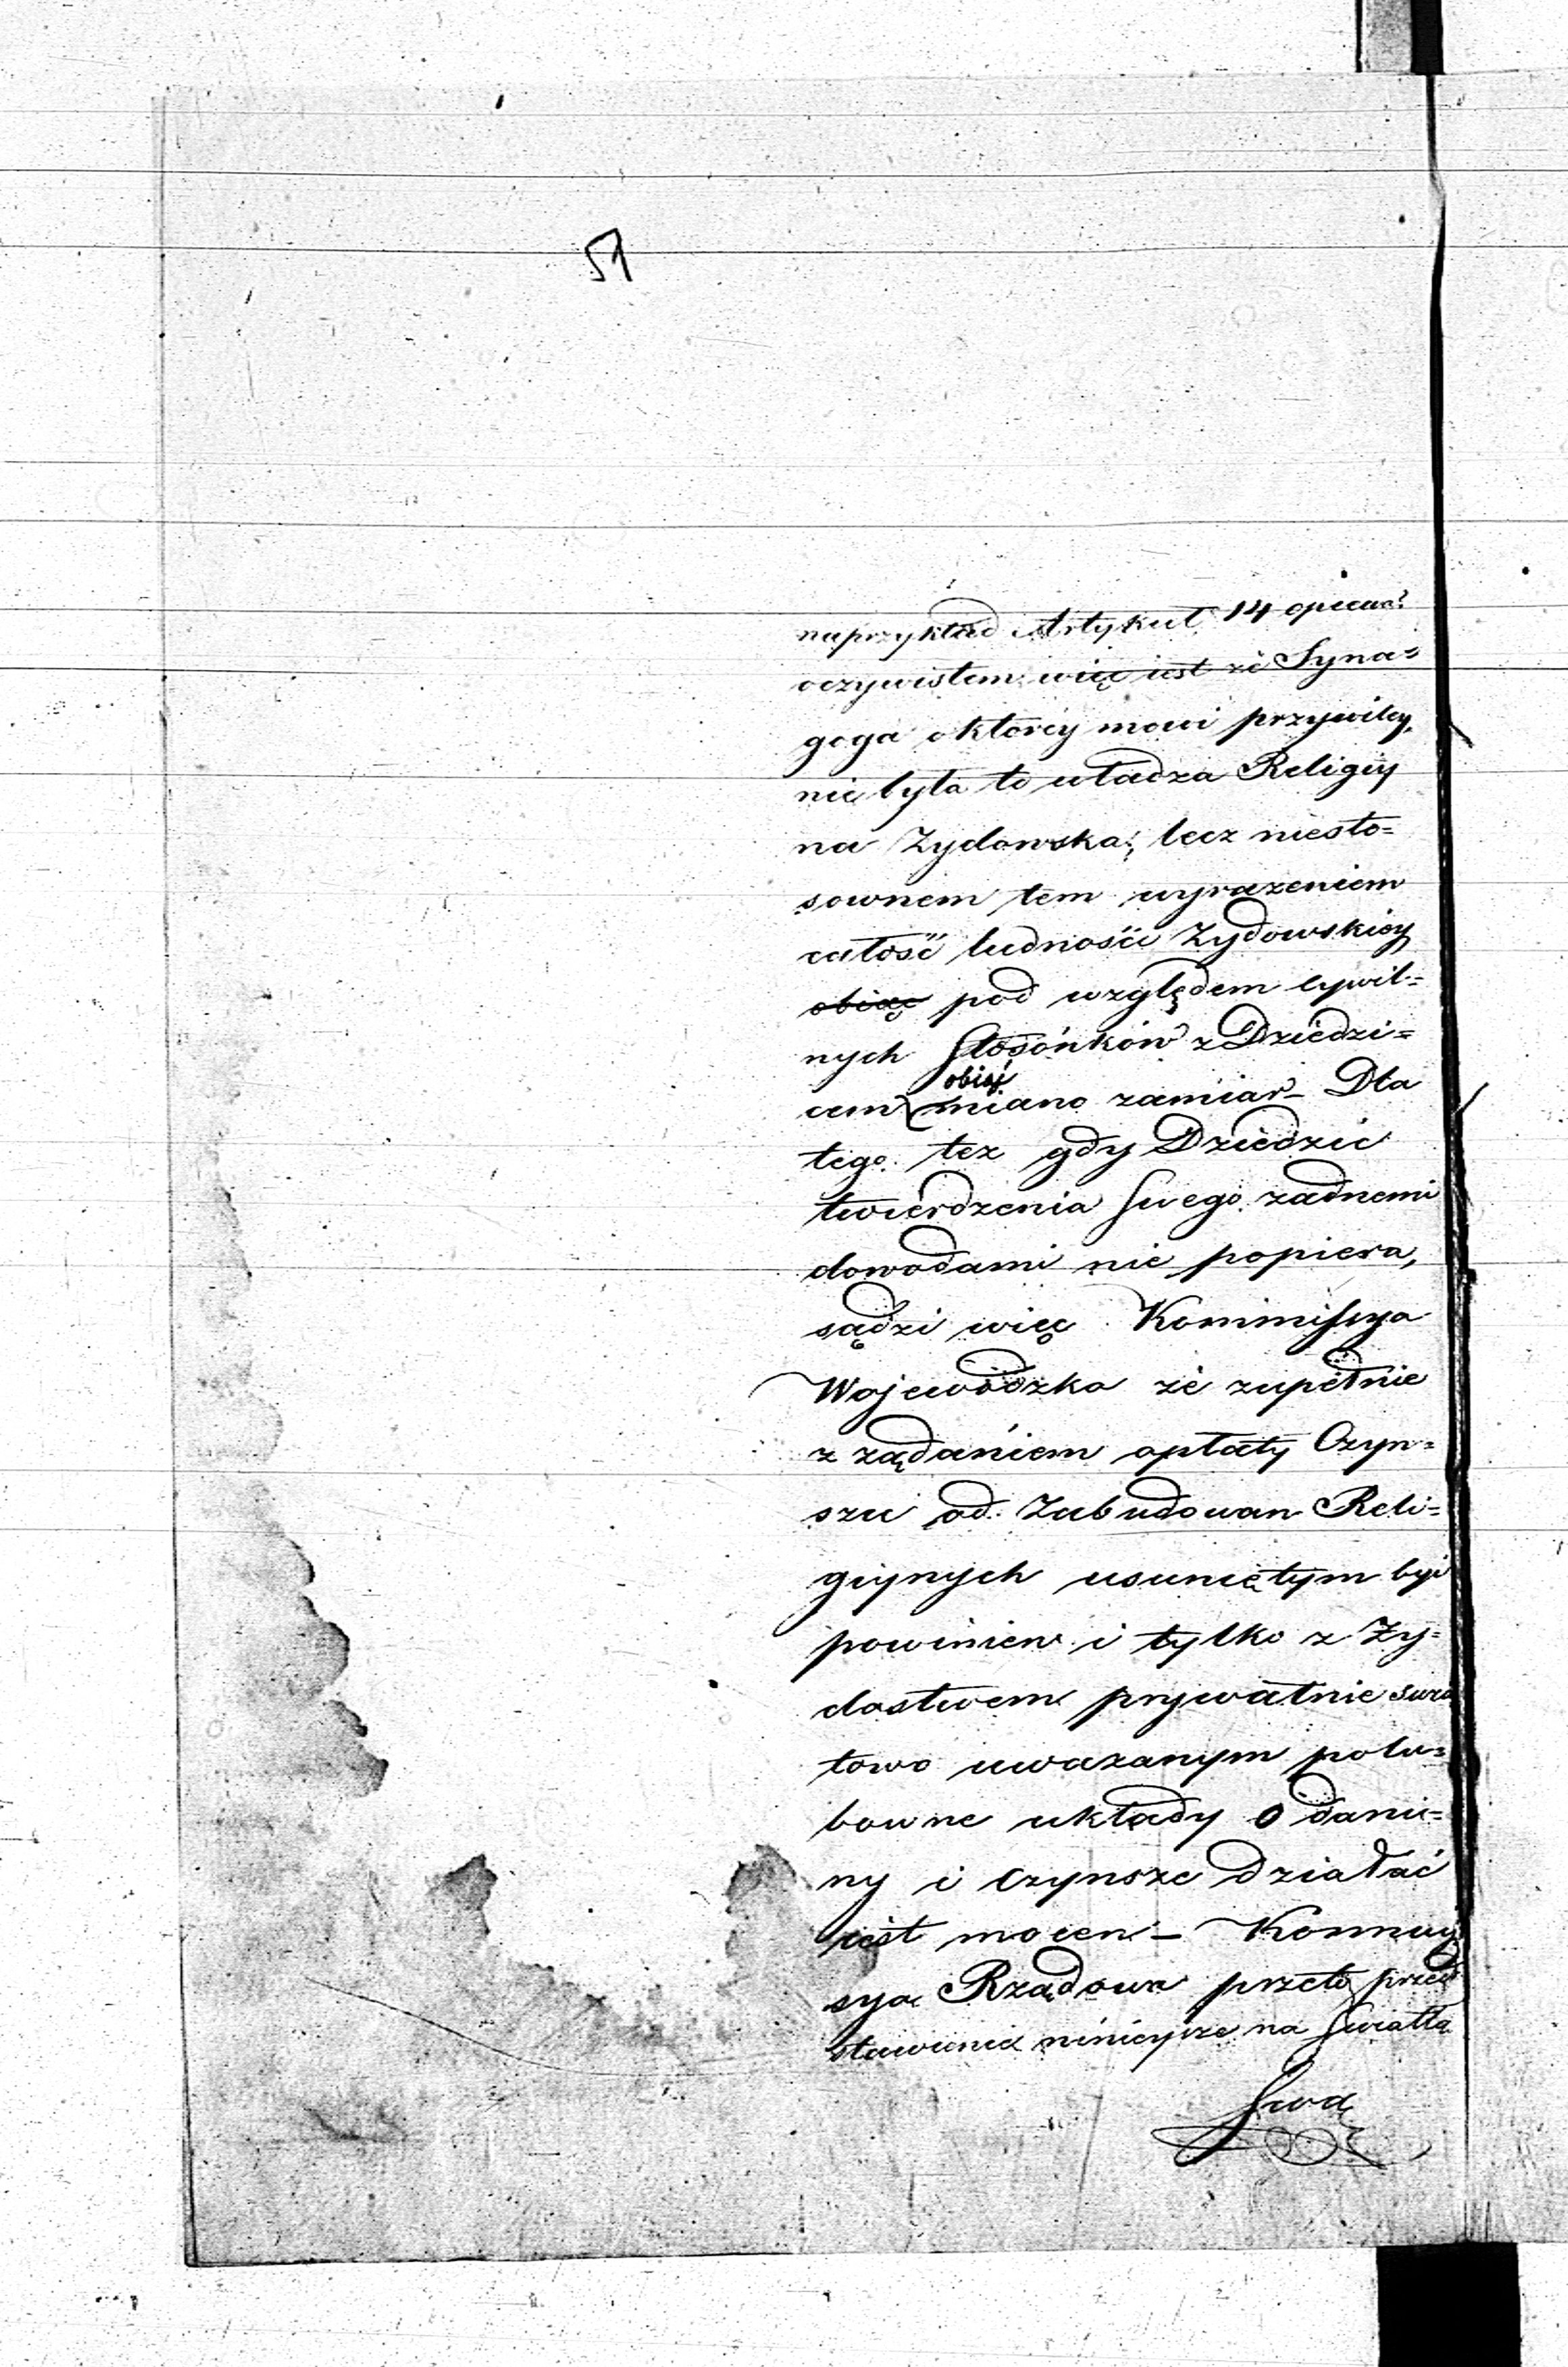 51
naprzykład Artykuł 14 opiewa
oczywistem więc iest że Syna=
goga o ktorey mowi przywiley,
nie była to władza Religiy
na Zydowska; lecz niesto=
sownem tem wyrazeniem
całość ludnośći Zydowskiey
obiąć pod względem cywil=
nych Stosónków z Dziedzi=
obiąć
cem miano zamiar – Dla
tego tez gdy Dziedzic
twierdzenia Swego zadnemi
dowodami nie popiera,
sądzi więc Kommissya
Wojewódzka że zupełnie
z ządaniem opłaty Czyn=
szu od Zabudowan Reli=
giynych usuniętym być
powinien i tylko z Zy=
dostwem prywatnie
towo uwazanym polu=
bowne układy o dani=
ny i czynsze działać
iest mocen – Kommis
sya Rządowa przeto przed
stawienie ninieysze na Swiatła
Swą